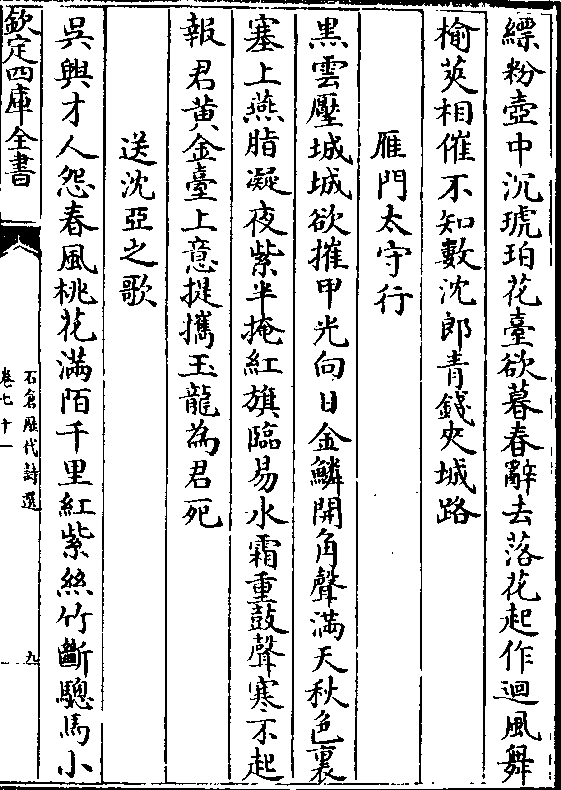 縹粉壺中沉琥珀花臺欲暮春辭去落花起作迴風舞
榆莢相催不知數沈郎青錢夾城路
雁門太守行
黒雲壓城城欲摧甲光向日金鱗開角聲滿天秋色裏
塞上燕脂凝夜紫半掩紅旗臨易水霜重鼓聲寒不起
報君黄金臺上意提攜玉龍為君死
送沈亞之歌
吳興才人怨春風桃花滿陌千里紅紫絲竹斷驄馬小
欽定四庫全書
石倉歴代詩選
卷七十一
九